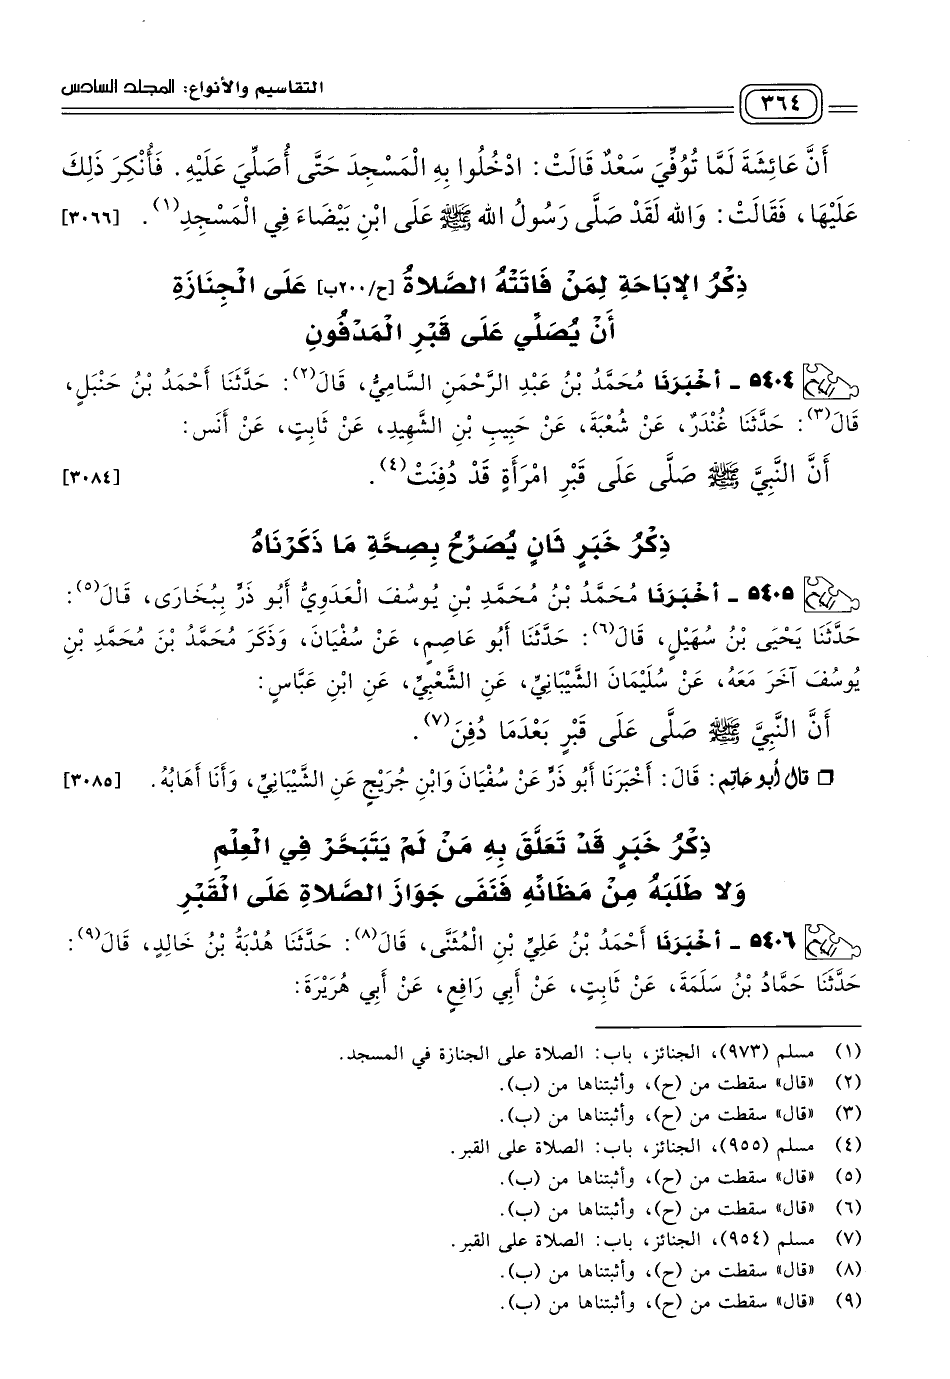 التقاسيم والأنواع: المجلد السادس
٣٦٤
أَنَّ عَائِشَةَ لَمَّا تُوُفِّيَ سَعْدٌ قَالَتْ: ادْخُلُوا بِهِ الْمَسْجِدَ حَتَّى أُصَلِّيَ عَلَيْهِ. فَأُنْكِرَ ذَلِكَ
عَلَيْهَا، فَقَالَتْ: وَاللهِ لَقَدْ صَلَّى رَسُولُ اللهِ ﷺ عَلَى ابْنِ بَيْضَاءَ فِي الْمَسْجِدِ(١). [٣٠٦٦]
ذِكْرُ الإِبَاحَةِ لِمَنْ فَاتَتْهُ الصَّلاةُ [ح/٢٠٠ب] عَلَى الْجِنَازَةِ
أَنْ يُصَلِّي عَلَى قَبْرِ الْمَدْفُونِ
٥٤٠٤ ـ أَخْبَرَنَا مُحَمَّدُ بْنُ عَبْدِ الرَّحْمَنِ السَّامِيُّ، قَالَ(٢): حَدَّثَنَا أَحْمَدُ بْنُ حَنْبَلٍ،
قَالَ(٣): حَدَّثَنَا غُنْدَرٌ، عَنْ شُعْبَةَ، عَنْ حَبِيبِ بْنِ الشَّهِيدِ، عَنْ ثَابِتٍ، عَنْ أَنَس:
أَنَّ النَّبِيَّ ﷺ صَلَّى عَلَى قَبْرِ امْرَأَةٍ قَدْ دُفِنَتْ(٤). [٣٠٨٤]
ذِكْرُ خَبَرٍ ثَانٍ يُصَرِّحُ بِصِحَّةِ مَا ذَكَرْنَاهُ
٥٤٠٥ ـ أَخْبَرَنَا مُحَمَّدُ بْنُ مُحَمَّدِ بْنِ يُوسُفَ الْعَدَوِيُّ أَبُو ذَرٍّ بِبُخَارَى، قَالَ(٥):
حَدَّثَنَا يَحْيَى بْنُ سُهَيْلٍ، قَالَ(٦): حَدَّثَنَا أَبُو عَاصِمٍ، عَنْ سُفْيَانَ، وَذَكَرَ مُحَمَّدُ بْنَ مُحَمَّدِ بْنِ
يُوسُفَ آخَرَ مَعَهُ، عَنْ سُلَيْمَانَ الشَّيْبَانِيِّ، عَنِ الشَّعْبِيِّ، عَنِ ابْنِ عَبَّاسٍ:
أَنَّ النَّبِيَّ ﷺ صَلَّى عَلَى قَبْرٍ بَعْدَمَا دُفِنَ(٧).
□ قال أبو حاتِم: قَالَ: أَخْبَرَنَا أَبُو ذَرٍّ عَنْ سُفْيَانَ وَابْنِ جُرَيْجٍ عَنِ الشَّيْبَانِيِّ، وَأَنَا أَهَابُهُ. [٣٠٨٥]
ذِكْرُ خَبَرٍ قَدْ تَعَلَّقَ بِهِ مَنْ لَمْ يَتَبَحَّرْ فِي الْعِلْمِ
وَلا طَلَبَهُ مِنْ مَظَانِّهِ فَنَفَى جَوَازَ الصَّلاةِ عَلَى الْقَبْرِ
٥٤٠٦ ـ أَخْبَرَنَا أَحْمَدُ بْنُ عَلِيِّ بْنِ الْمُثَنَّى، قَالَ(٨): حَدَّثَنَا هُدْبَةُ بْنُ خَالِدٍ، قَالَ(٩):
حَدَّثَنَا حَمَّادُ بْنُ سَلَمَةَ، عَنْ ثَابِتٍ، عَنْ أَبِي رَافِعٍ، عَنْ أَبِي هُرَيْرَةَ:
(١) مسلم (٩٧٣)، الجنائز، باب: الصلاة على الجنازة في المسجد.
(٢) «قال» سقطت من (ح)، وأثبتناها من (ب).
(٣) «قال» سقطت من (ح)، وأثبتناها من (ب).
(٤) مسلم (٩٥٥)، الجنائز، باب: الصلاة على القبر.
(٥) «قال» سقطت من (ح)، وأثبتناها من (ب).
(٦) «قال» سقطت من (ح)، وأثبتناها من (ب).
(٧) مسلم (٩٥٤)، الجنائز، باب: الصلاة على القبر.
(٨) «قال» سقطت من (ح)، وأثبتناها من (ب).
(٩) «قال» سقطت من (ح)، وأثبتناها من (ب).